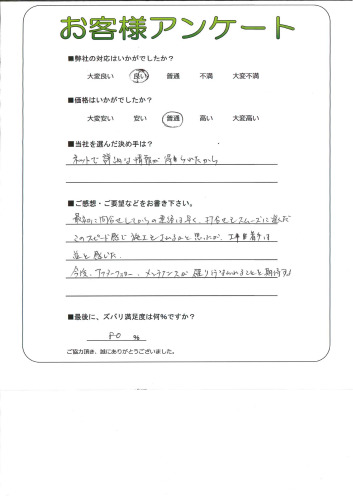 お客様アンケート
■弊社の対応はいかがでしたか？
大変良い 良い 普通 不満 大変不満
■価格はいかがでしたか？
大変安い 安い 普通 高い 大変高い
■当社を選んだ決め手は？
ネットで詳細な情報が得られたから
■ご感想・ご要望などをお書き下さい。
最初に問合せしてからの業は早く、打合せもスムーズに進んだ
このスピード感で施工もされるかと思ったが、工事着手は
と感じた。
今後、アフターフォロー、メンテナンスが行なわれることを期待する
■最後に、ズバリ満足度は何%ですか？
80 %
ご協力頂き、誠にありがとうございました。